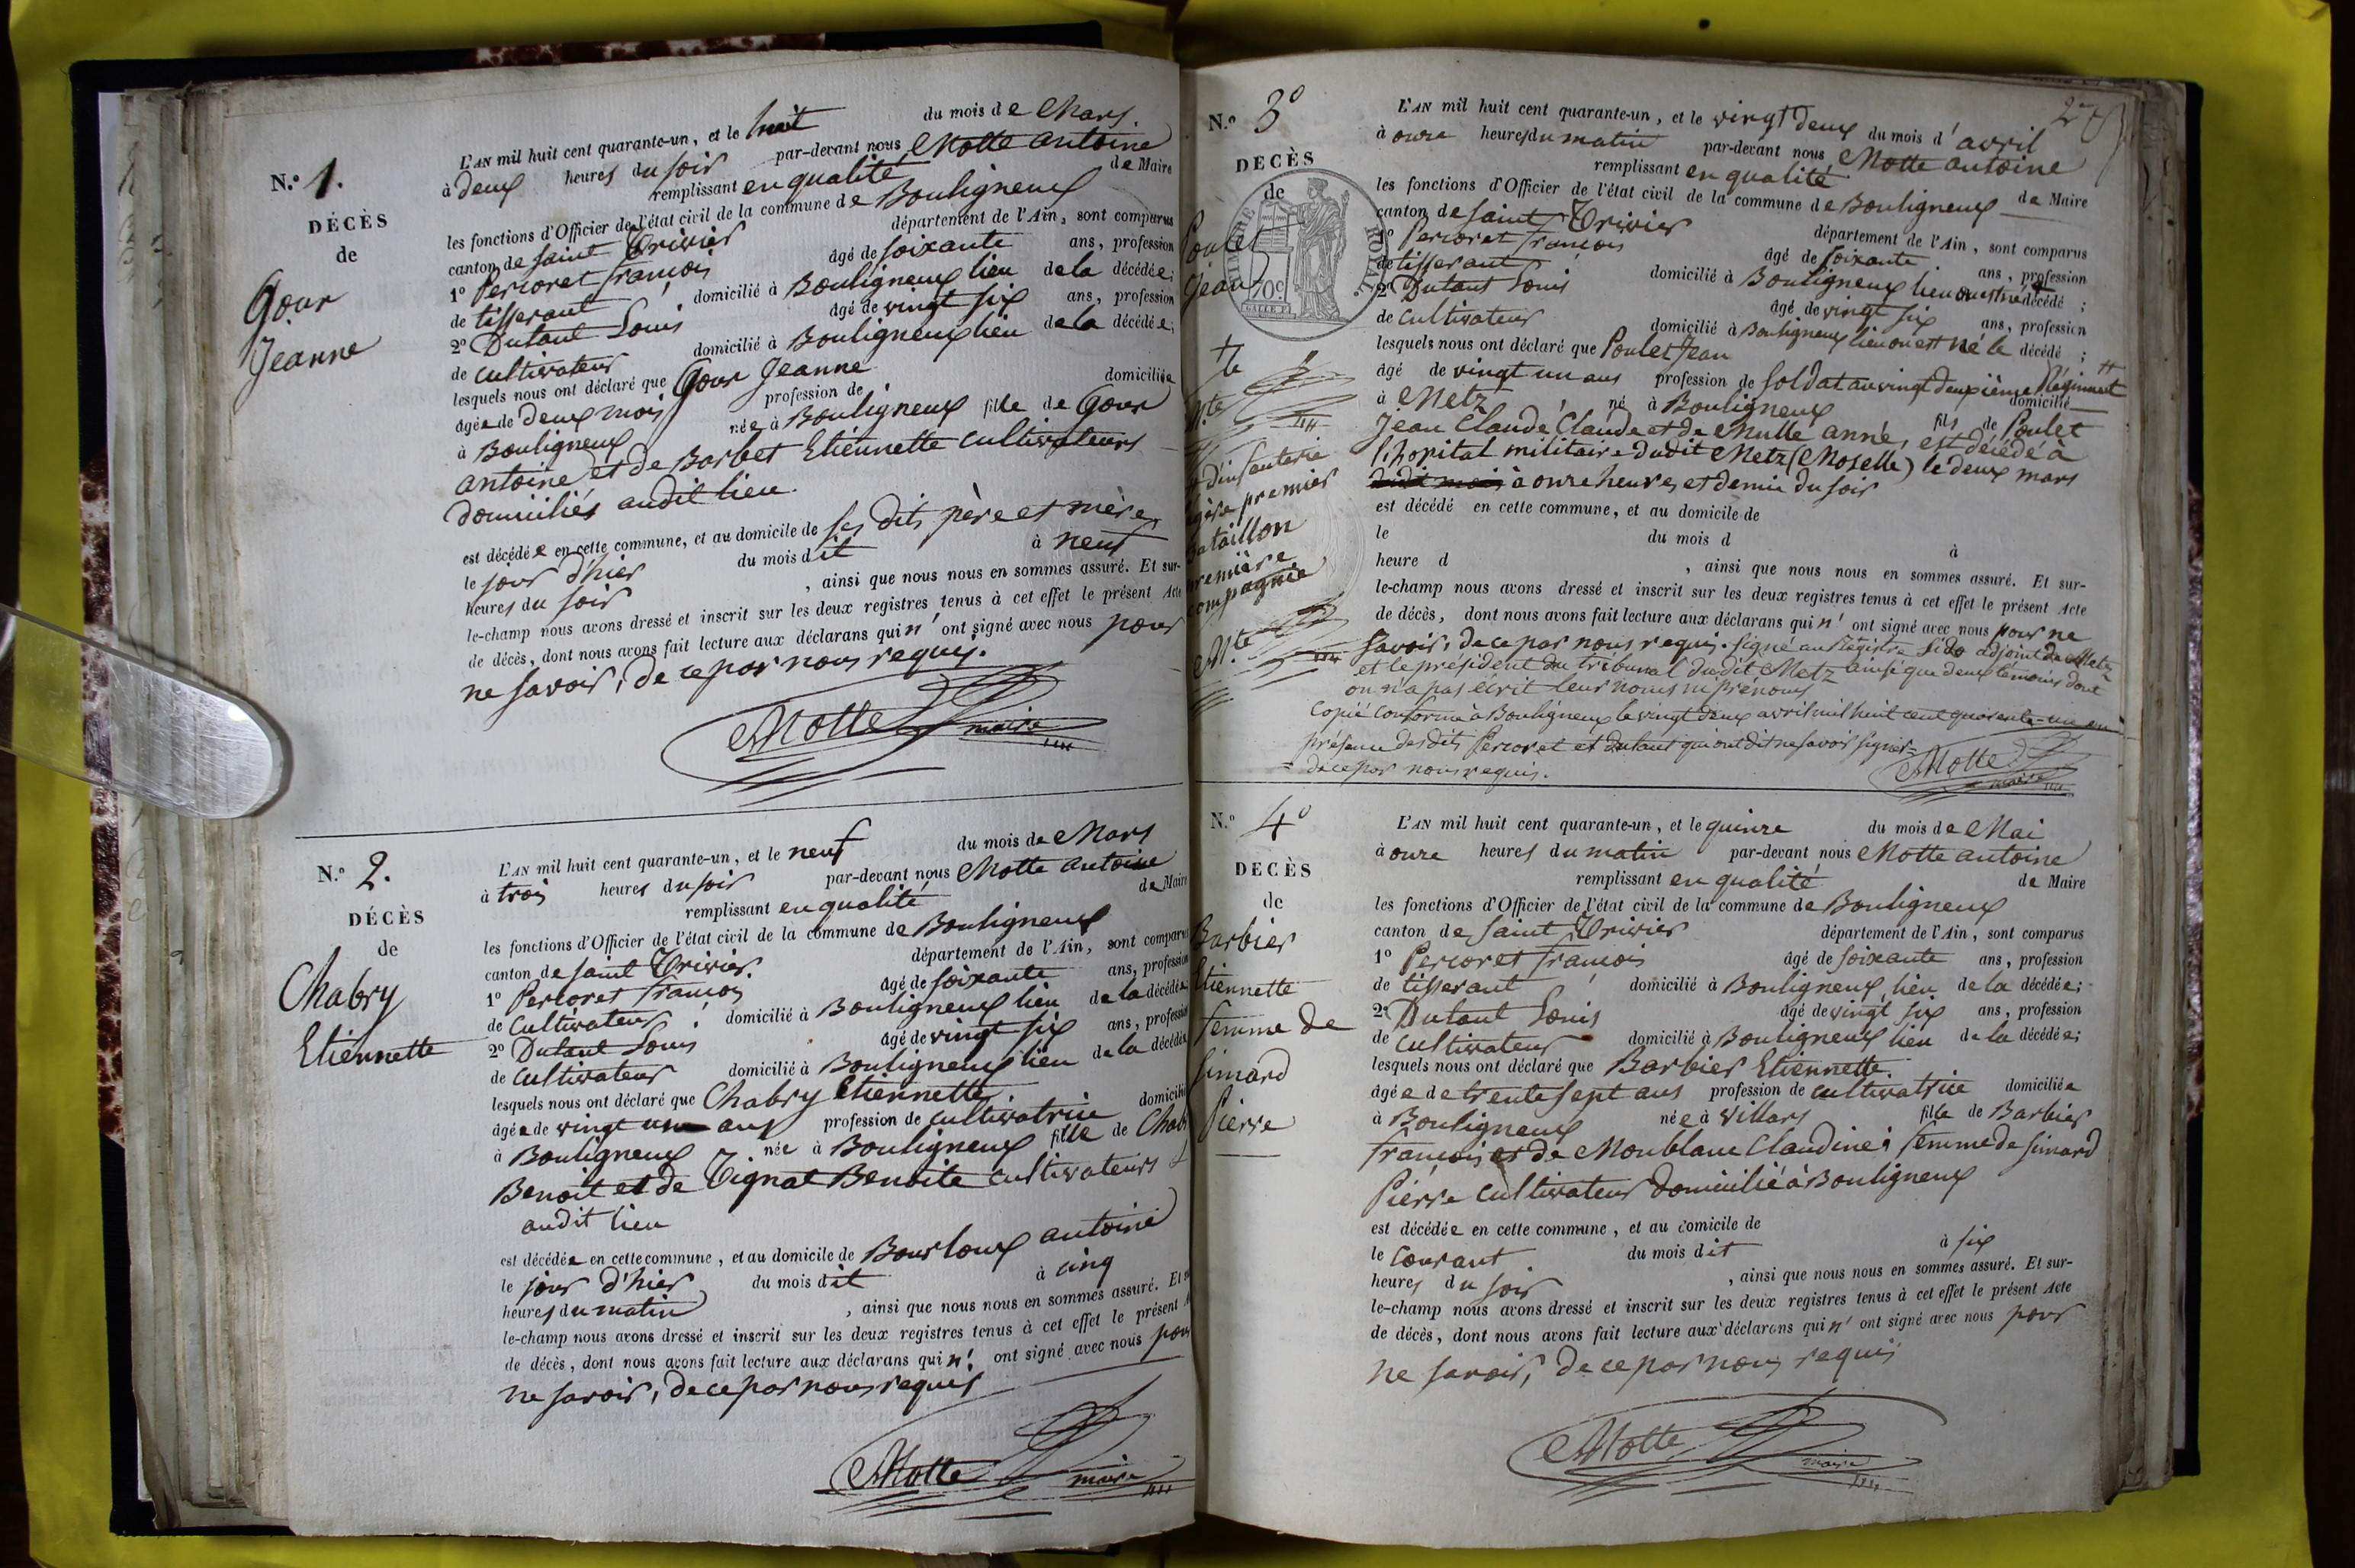 N.º 1.
DÉCÈS
de
Gour
Jeanne
L'AN mil huit cent quarante-un, et le huit du mois de Mars.
à deux heures du soir par-devant nous Motte antoine
remplissant en qualité de Maire
les fonctions d'Officier de l'état civil de la commune de Bouligneux
canton de saint Trivier département de l'Ain, sont comparus
1º Percoret françois âgé de soixante ans, profession
de tisserant domicilié à Bouligneux lieu de la décédée;
2º Dutant Louis âgé de vingt six ans, profession
de cultivateur domicilié à Bouligneux lieu de la décédée;
lesquels nous ont déclaré que Gour Jeanne
âgée de deux mois profession de domiciliée
à Bouligneux née à Bouligneux fille de Gour
antoine et de Barbet Etiennette cultivateurs
domiciliés audit lieu.
est décédée en cette commune, et au domicile de ses dits père et mère
le jour d'hier du mois dit à neuf
heures du soir, ainsi que nous nous en sommes assuré. Et sur-
le-champ nous avons dressé et inscrit sur les deux registres tenus à cet effet le présent Acte
de décès, dont nous avons fait lecture aux déclarans qui n'ont signé avec nous pour
ne savoir, de ce par nous requis.
Motte maire
N.º 2.
DÉCÈS
de
Chabry
Etiennette
L'AN mil huit cent quarante-un, et le neuf du mois de Mars
à trois heures du soir par-devant nous Motte antoine
remplissant en qualité de Maire
les fonctions d'Officier de l'état civil de la commune de Bouligneux
canton de saint Trivier. département de l'Ain, sont comparus
1º Percoret françois âgé de soixante ans, profession
de cultivateur domicilié à Bouligneux lieu de la décédée
2º Dutant Louis âgé de vingt six ans, profession
de cultivateur domicilié à Bouligneux lieu de la décédée
lesquels nous ont déclaré que Chabry Etiennette
âgée de vingt un ans profession de cultivatrice domicilié
à Bouligneux née à Bouligneux fille de Chabr
Benoit et de Tignat Benoite cultivateurs
audit lieu
est décédée en cette commune, et au domicile de Bourloux antoine
le jour d'hier du mois dit à cinq
heures du matin, ainsi que nous nous en sommes assuré. Et
le-champ nous avons dressé et inscrit sur les deux registres tenus à cet effet le présent
de décès, dont nous avons fait lecture aux déclarans qui n' ont signé avec nous pour
ne savoir, de ce par nous requis
Motte maire
28
N.º 3º
DÉCÈS
de
Poulet
Jean
TIMBRE ROYAL
70c
L'AN mil huit cent quarante-un, et le vingt deux du mois d'avril
à onze heures du matin par-devant nous Motte antoine
remplissant en qualité de Maire
les fonctions d'Officier de l'état civil de la commune de Bouligneux
canton de saint Trivier département de l'Ain, sont comparus
1º Percoret françois âgé de soixante ans, profession
de tisserant domicilié à Bouligneux lieu ou est né le décédé;
2º Dutant Louis âgé de vingt six ans, profession
de cultivateur domicilié à Bouligneux lieu ou est né le décédé;
lesquels nous ont déclaré que Poulet Jean
âgé de vingt un ans profession de soldat au vingt deuxième Régiment
à Metz, né à Bouligneux domicilié
fils de Poulet
Jean Claude Claude et de Mulle anne, est décédé à
l'hopital militaire dudit Metz (Moselle) le deux mars
à onze heures et demie du soir
d'infanterie
légère premier
bataillon
première
compagnie
est décédé en cette commune, et au domicile de
le du mois d à
heure d, ainsi que nous nous en sommes assuré. Et sur-
le-champ nous avons dressé et inscrit sur les deux registres tenus à cet effet le présent Acte
de décès, dont nous avons fait lecture aux déclarans qui n' ont signé avec nous pour ne
savoir, de ce par nous requis. signé au Registre adjoint de Metz
et le président du tribunal dudit Metz ainsi que deux témoins dont
on n'a pas écrit leur noms ni prénoms
Copié conforme à Bouligneux le vingt deux avril mil huit cent quarante-un en
présence des dits Percoret et dutant qui ont dit ne savoir signer
= de ce par nous requis.
Motte maire
N.º 4º
DÉCÈS
de
Barbier
Etiennette
femme de
Simard
Pierre
L'AN mil huit cent quarante-un, et le quinze du mois de Mai
à onze heures du matin par-devant nous Motte antoine
remplissant en qualité de Maire
les fonctions d'Officier de l'état civil de la commune de Bouligneux
canton de saint Trivier département de l'Ain, sont comparus
1º Percoret françois âgé de soixante ans, profession
de tisserant domicilié à Bouligneux lieu de la décédée;
2º Dutant Louis âgé de vingt six ans, profession
de cultivateur domicilié à Bouligneux lieu de la décédée;
lesquels nous ont déclaré que Barbier Etiennette.
âgée de trente sept ans profession de cultivatrice domiciliée
à Bouligneux née à Villars fille de Barbier
françois et de Monblanc Claudine; femme de Simard
Pierre cultivateur domicilié à Bouligneux
est décédée en cette commune, et au domicile de
le courant du mois dit à six
heures du soir, ainsi que nous nous en sommes assuré. Et sur-
le-champ nous avons dressé et inscrit sur les deux registres tenus à cet effet le présent Acte
de décès, dont nous avons fait lecture aux déclarans qui n' ont signé avec nous pour
ne savoir, de ce par nous requis
Motte maire